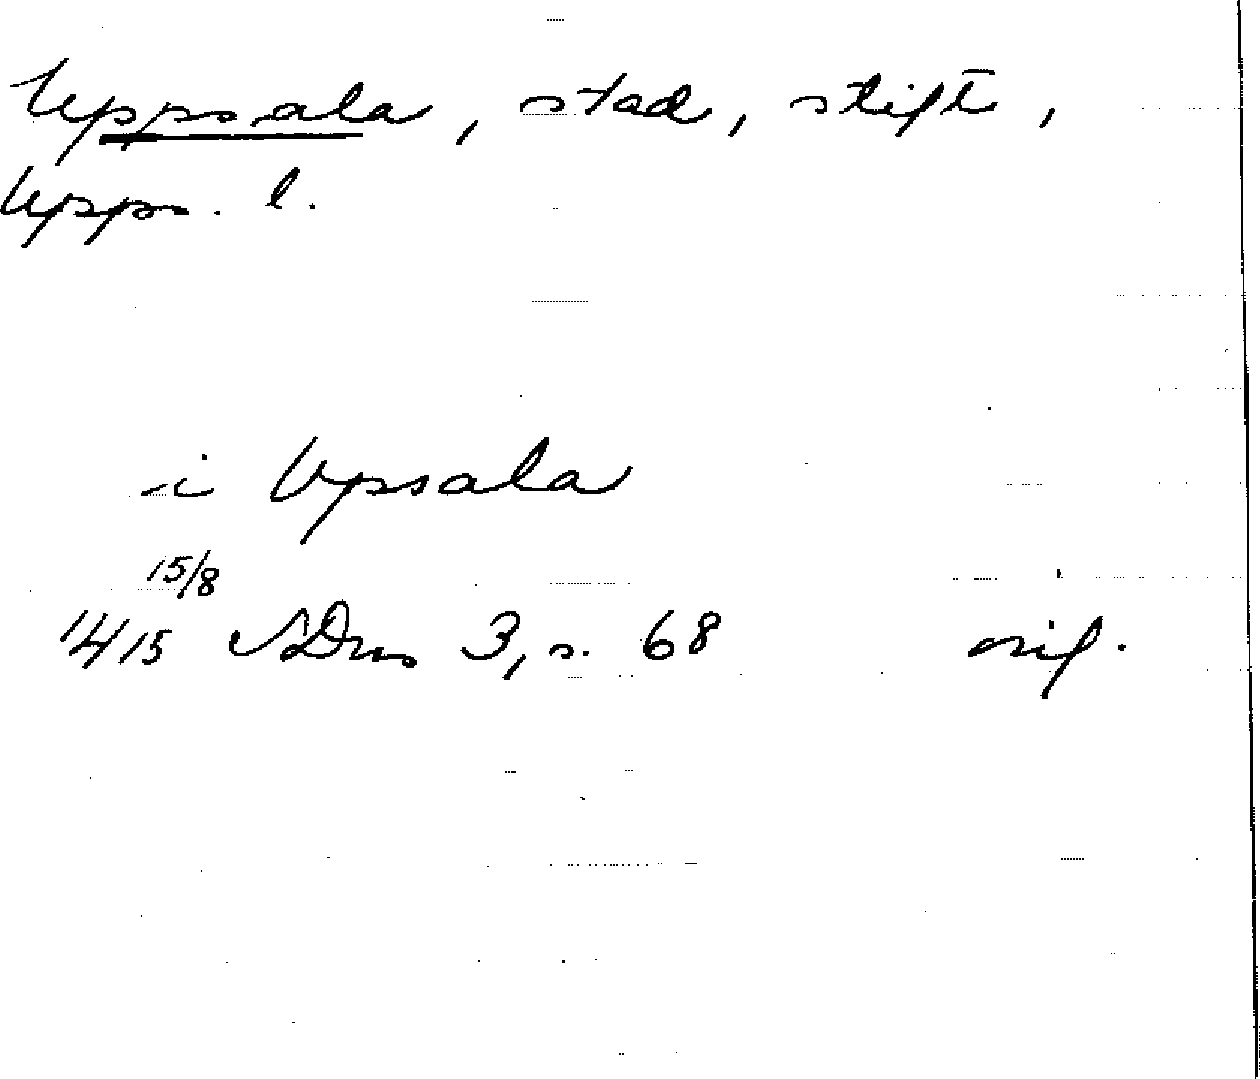 Uppsala, stad, stift,
Upps. l.
i Vpsala
15/8
1415 SDns 3, s. 68 orig.